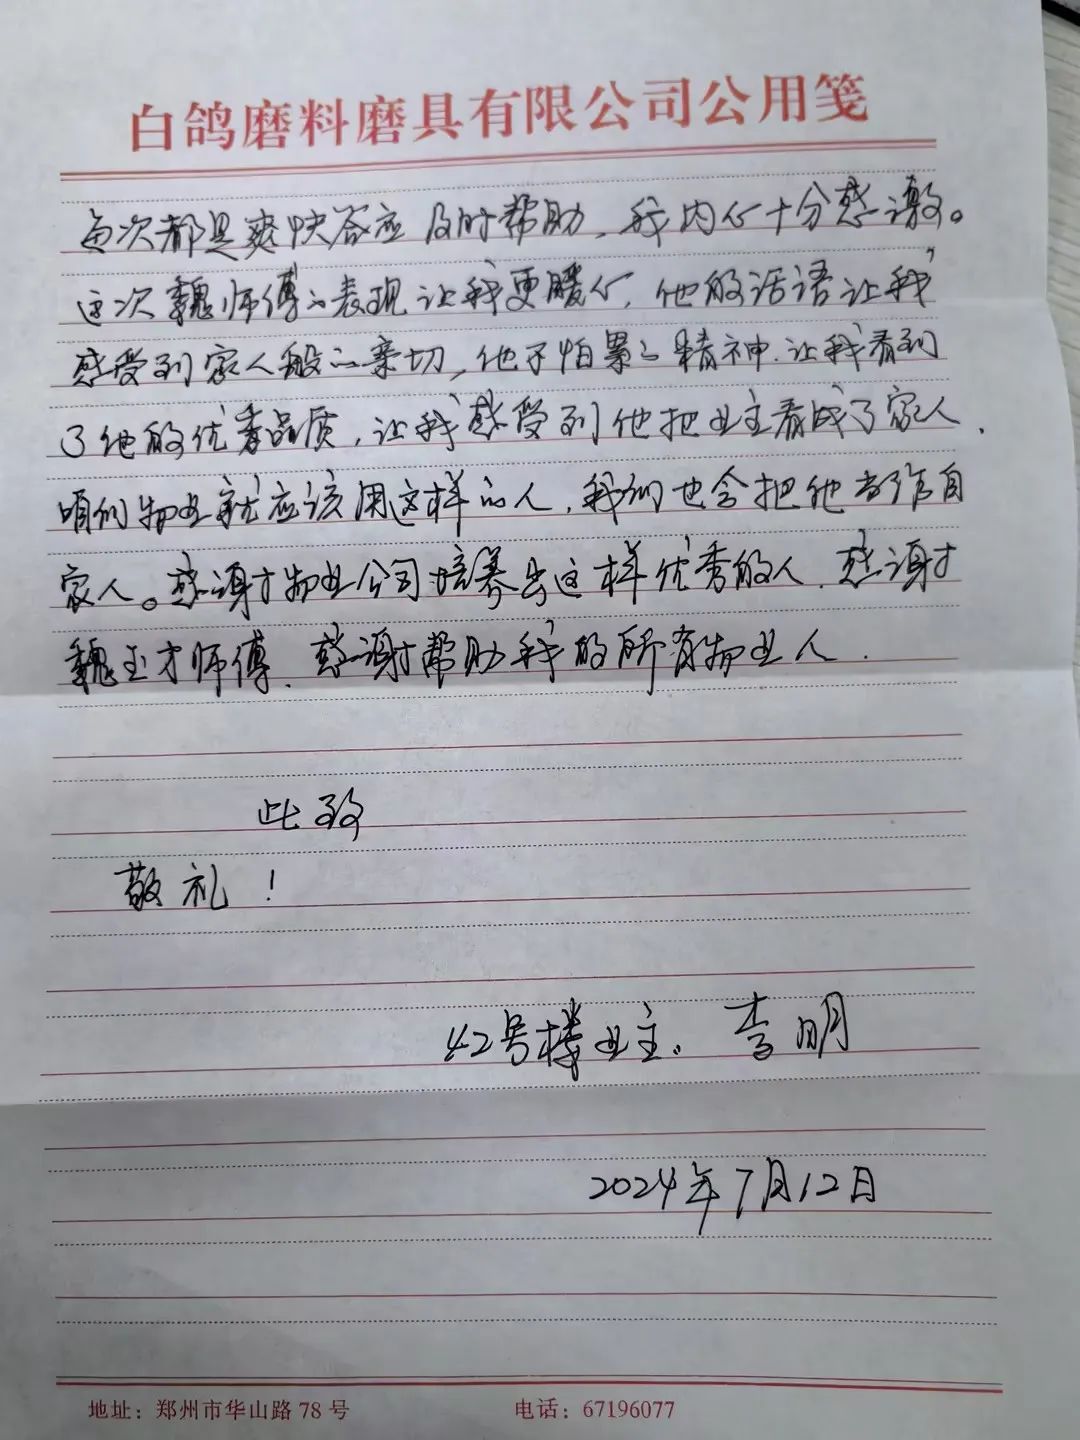 白鸽磨料磨具有限公司公用笺
每次都是爽快答应及时帮助，我内心十分感激。
这次魏师傅的表现让我更暖心，他的话语让我
感受到家人般的亲切，他不怕累的精神.让我看到
了他的优秀品质，让我感受到他把业主看成了家人，
咱们物业就应该用这样的人，我们也会把他当作自
家人。感谢物业公司培养出这样优秀的人.感谢
魏玉才师傅.感谢帮助我的所有物业人.
此致
敬礼！
42号楼业主。李明
2024年7月12日
地址：郑州市华山路78号 电话：67196077